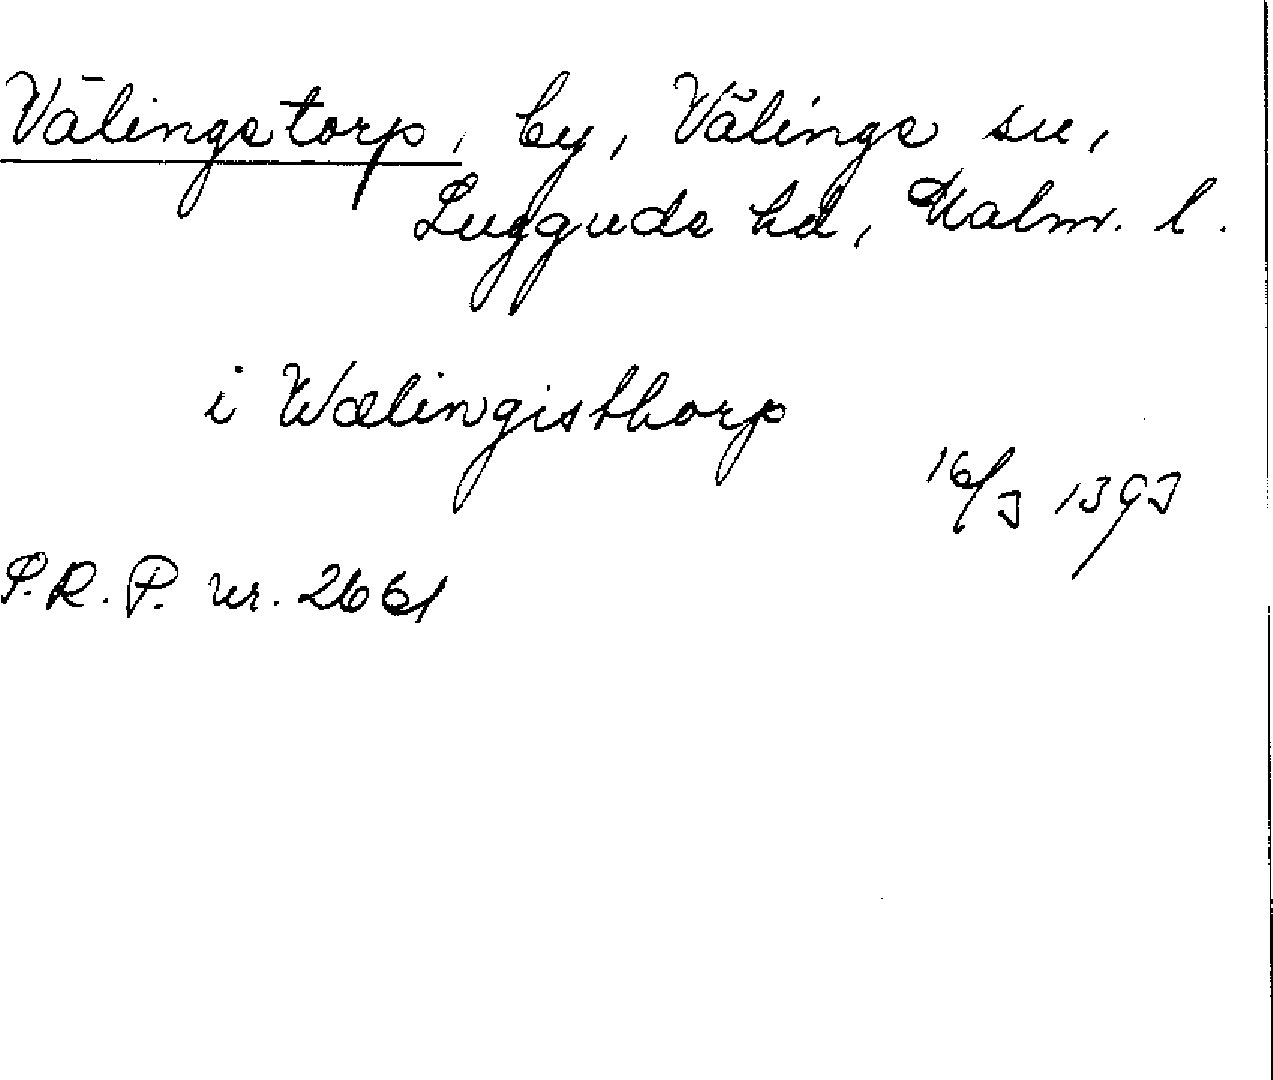 Välingetorp, by, Välinge sn,
Luggude hd, Malm. l.
i Wælingisthorp
16/3 1393
S.R.P. nr. 2661